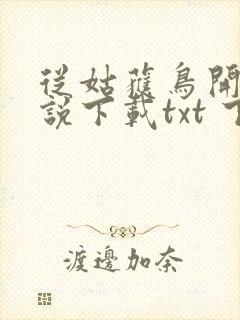 從姑獲鳥開
說下載txt 下
渡邊加奈